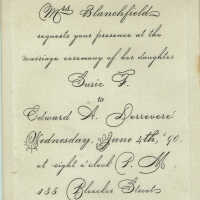 Mrs Blanchfield
requests your presence at the
marriage ceremony of her daughter
Susie F.
to
Edward A. Derreveré
Wednesday, June 4th, '90.
at eight o'clock P. M
155 Bleecker Street